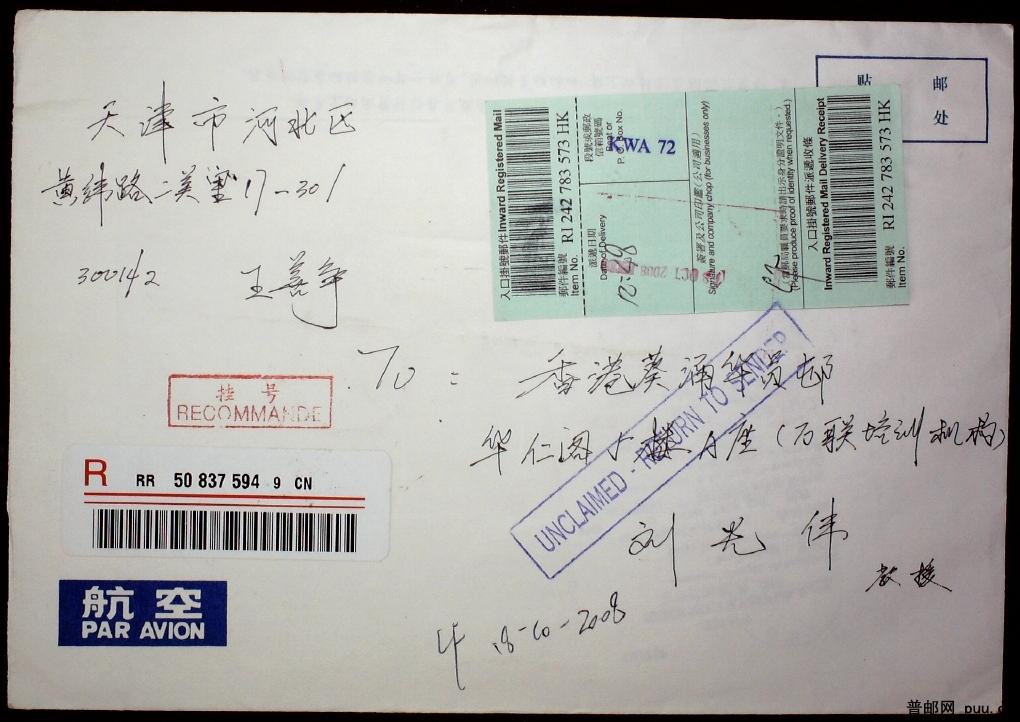 天津市河北区
黄纬路二美里17-301
300142
点 邮
处
入口掛號郵件Inward Registered Mail
郵件編號 RI 242 783 573 HK
Item No.
派遞日期
Date of Delivery
段號或郵政
信箱號碼
P. O. Box No.
KWA 72
簽署及公司印鑑(公司適用)
Signature and company chop (for businesses only)
OCT 2008
(Please produce proof of identity when requested.)
入口掛號郵件派遞收條
Inward Registered Mail Delivery Receipt
RI 242 783 573 HK
郵件編號
Item No.
To:
香港葵涌华员邨
华仁阁
座(万联培训机构)
刘光伟
教授
UNCLAIMED - RETURN TO SENDER
挂号
RECOMMANDE
R RR 50 837 594 9 CN
航空
PAR AVION
18-10-2008
普邮网 puu.c